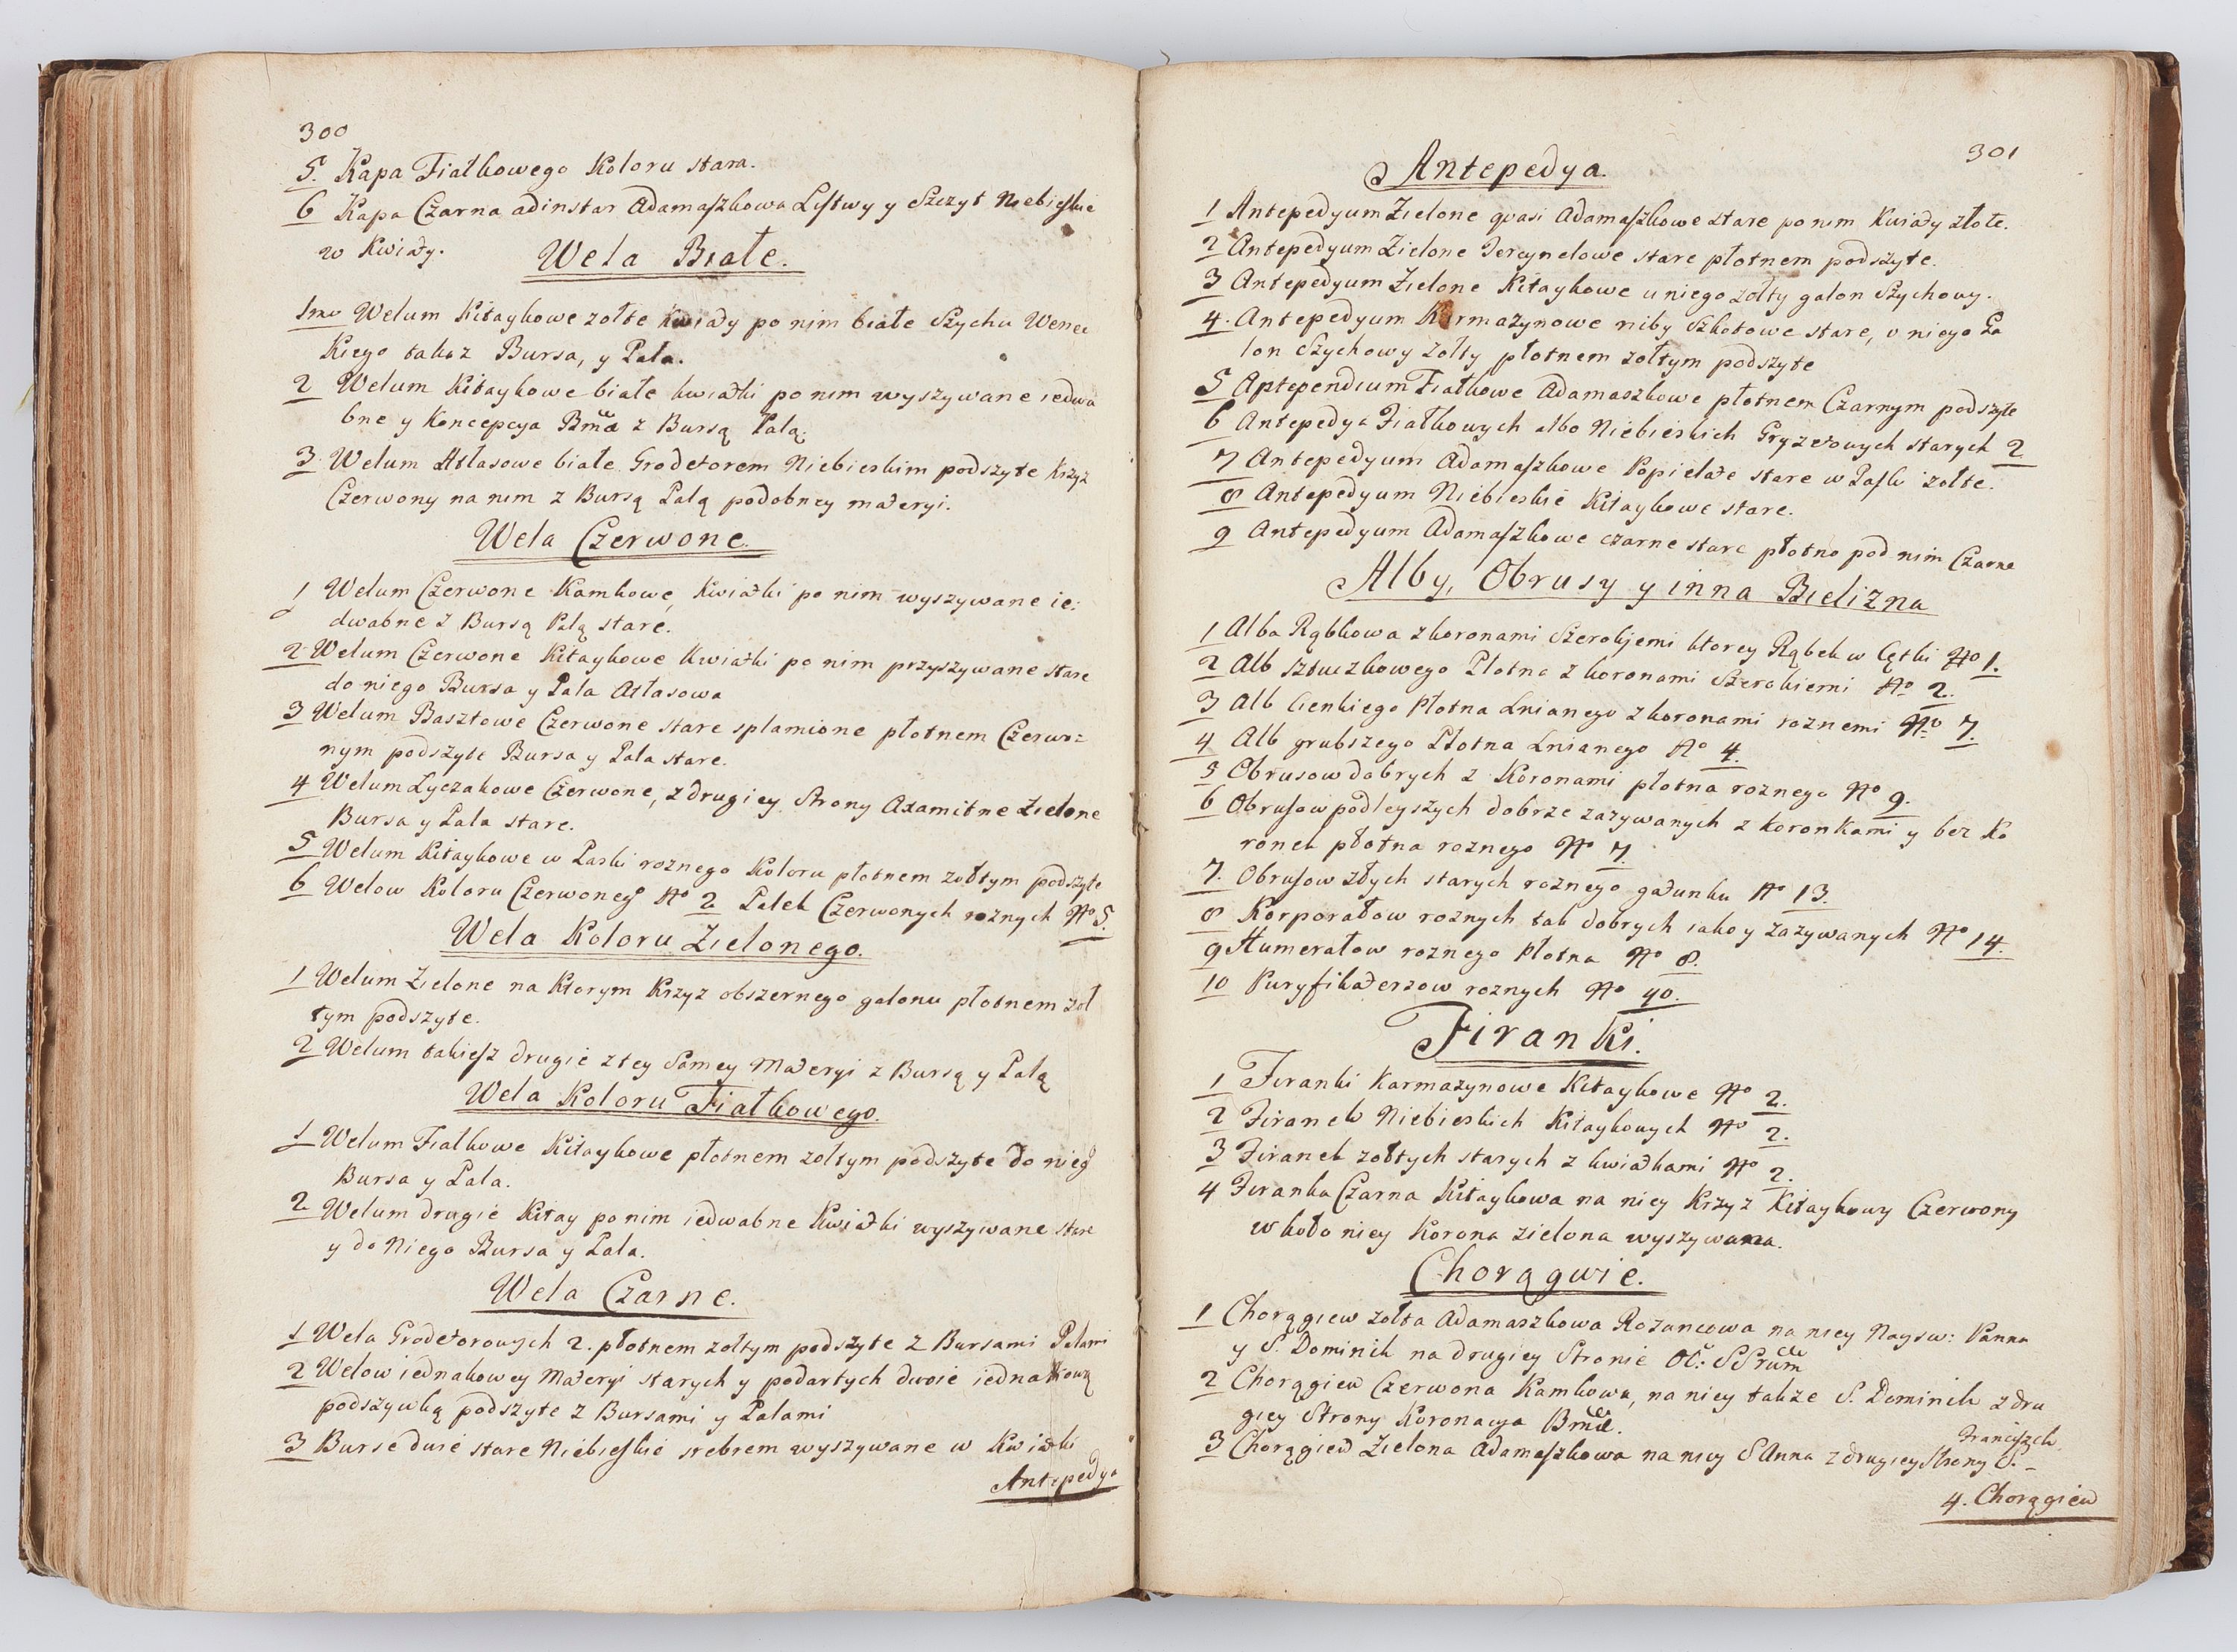 300
5. Kapa Fiałkowego Koloru stara.
6 Kapa Czarna adinstar Adamaszkowa Listwy y Szczyt Niebieskie
w Kwiaty.
Wela Białe.
1mo Welum Kitaykowe zołte kwiaty po nim białe Szychu Wenec
kiego takaz Bursa, y Pala.
2 Welum Kitaykowe białe kwiatki po nim wyszywane iedwa
bne y Koncepcya Bmæ z Bursą Palą.
3 Welum Atłasowe białe Grodetorem Niebieskim podszyte krzyz
Czerwony na nim z Bursą Palą podobney materyi.
Wela Czerwone.
1 Welum Czerwone Kamkowe, kwiatki po nim wyszywane ie:
dwabne z Bursą Palą stare.
2 Welum Czerwone Kitaykowe kwiatki po nim przyszywane stare
do niego Bursa y Pala Atłasowa
3 Welum Basztowe Czerwone stare splamione płotnem Czerwo=
nym podszyte Bursa y Pala stare.
4 Welum Łyczakowe Czerwone, z drugiey Strony Axamitne Zielone
Bursa y Pala stare.
5 Welum Kitaykowe w Paski roznego Koloru płotnem zołtym podszyte
6 Welow Koloru Czerwoneg No 2 Palek Czerwonych roznych No 5.
Wela Koloru Zielonego.
1 Welum Zielone na ktorym Krzyz obszernego galonu płotnem zoł
tym podszyte.
2 Welum takiesz drugie z tey Samey Materyi z Bursą y Palą
Wela Koloru Fiałkowego.
1 Welum Fiałkowe Kitaykowe płotnem zołtym podszyte do nieg
Bursa y Pala.
2 Welum drugie Kitay po nim iedwabne Kwiatki wyszywane stare
y do Niego Bursa y Pala.
Wela Czarne.
1 Wela Grodetorowych 2. płotnem zołtym podszyte z Bursami Palami
2 Welow iednakowey Materyi starych y podartych dwoie iednakową
podszywką podszyte z Bursami y Palami
3 Burse dwie stare Niebieskie srebrem wyszywane w Kwiatki
Antepedya
301
Antepedya.
1 Antepedyum Zielone quasi Adamaszkowe stare po nim Kwiaty złote.
2 Antepedyum Zielone Tercynelowe stare płotnem podszyte.
3 Antepedyum Zielone Kitaykowe u niego zołty galon Szychowy.
4. Antepedyum Karmazynowe niby Szkotowe stare, u niego Ga
lon Szychowy zołty płotnem zołtym podszyte
5 Aptependium Fiałkowe Adamaszkowe płotnem Czarnym podszyte
6 Antepedya Fiałkowych albo Niebieskich Gryzetowych starych 2
7 Antepedyum Adamaszkowe Popielate stare w Paski zołte.
8 Antepedyum Niebieskie Kitaykowe stare.
9 Antepedyum Adamaszkowe czarne stare płotno pod nim Czarne
Alby, Obrusy y inna Bielizna
1 Alba Rąbkowa z koronami Szerokjemi ktorey Rąbek w Cętki No 1.
2 Alb sztuczkowego Płotna z koronami Szerokiemi No 2.
3 Alb Cienkiego Płotna Lnianego z koronami roznemi No 7.
4 Alb grubszego Płotna Lnianego No 4.
5 Obrusow dobrych z Koronami płotna roznego No 9.
6 Obrusow podleyszych dobrze zazywanych z koronkami y bez Ko
ronek płotna roznego No 7.
7. Obrusow złych starych roznego gatunku No 13.
8 Korporałow roznych tak dobrych iako y zazywanych No 14.
9 Humerałow roznego Płotna No 8.
10 Puryfikaterzow roznych No 40.
Firanki.
1 Firanki Karmazynowe Kitaykowe No 2.
2 Firanek Niebieskich Kitaykowych No 2.
3 Firanek zołtych starych z kwiatkami No 2.
4 Firanka Czarna Kitaykowa na niey Krzyz Kitaykowy Czerwony
w koło niey Korona zielona wyszywana.
Chorągwie.
1 Chorągiew zołta Adamaszkowa Rozancowa na niey Nayśw: Panna
y S. Dominik na drugiey Stronie
2 Chorągiew Czerwona Kamkowa, na niey takze S. Dominik z dru
giey Strony Koronacya Bmæ.
3 Chorągiew Zielona Adamaszkowa na niey S Anna z drugiey Strony S. Franciszek.
4. Chorągiew